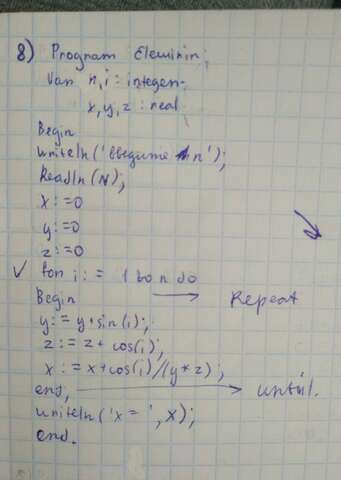 8) Program Elewinin;
Var n,i: integer;
x,y,z: real
Begin
writeln('Введите n');
Readln(N);
x:=0
y:=0
z:=0
✓ for i:= 1 to n do
Begin → Repeat
y:=y+sin(i);
z:=z+cos(i);
x:=x+cos(i)/(y*z);
end; → until.
writeln('x=',x);
end.